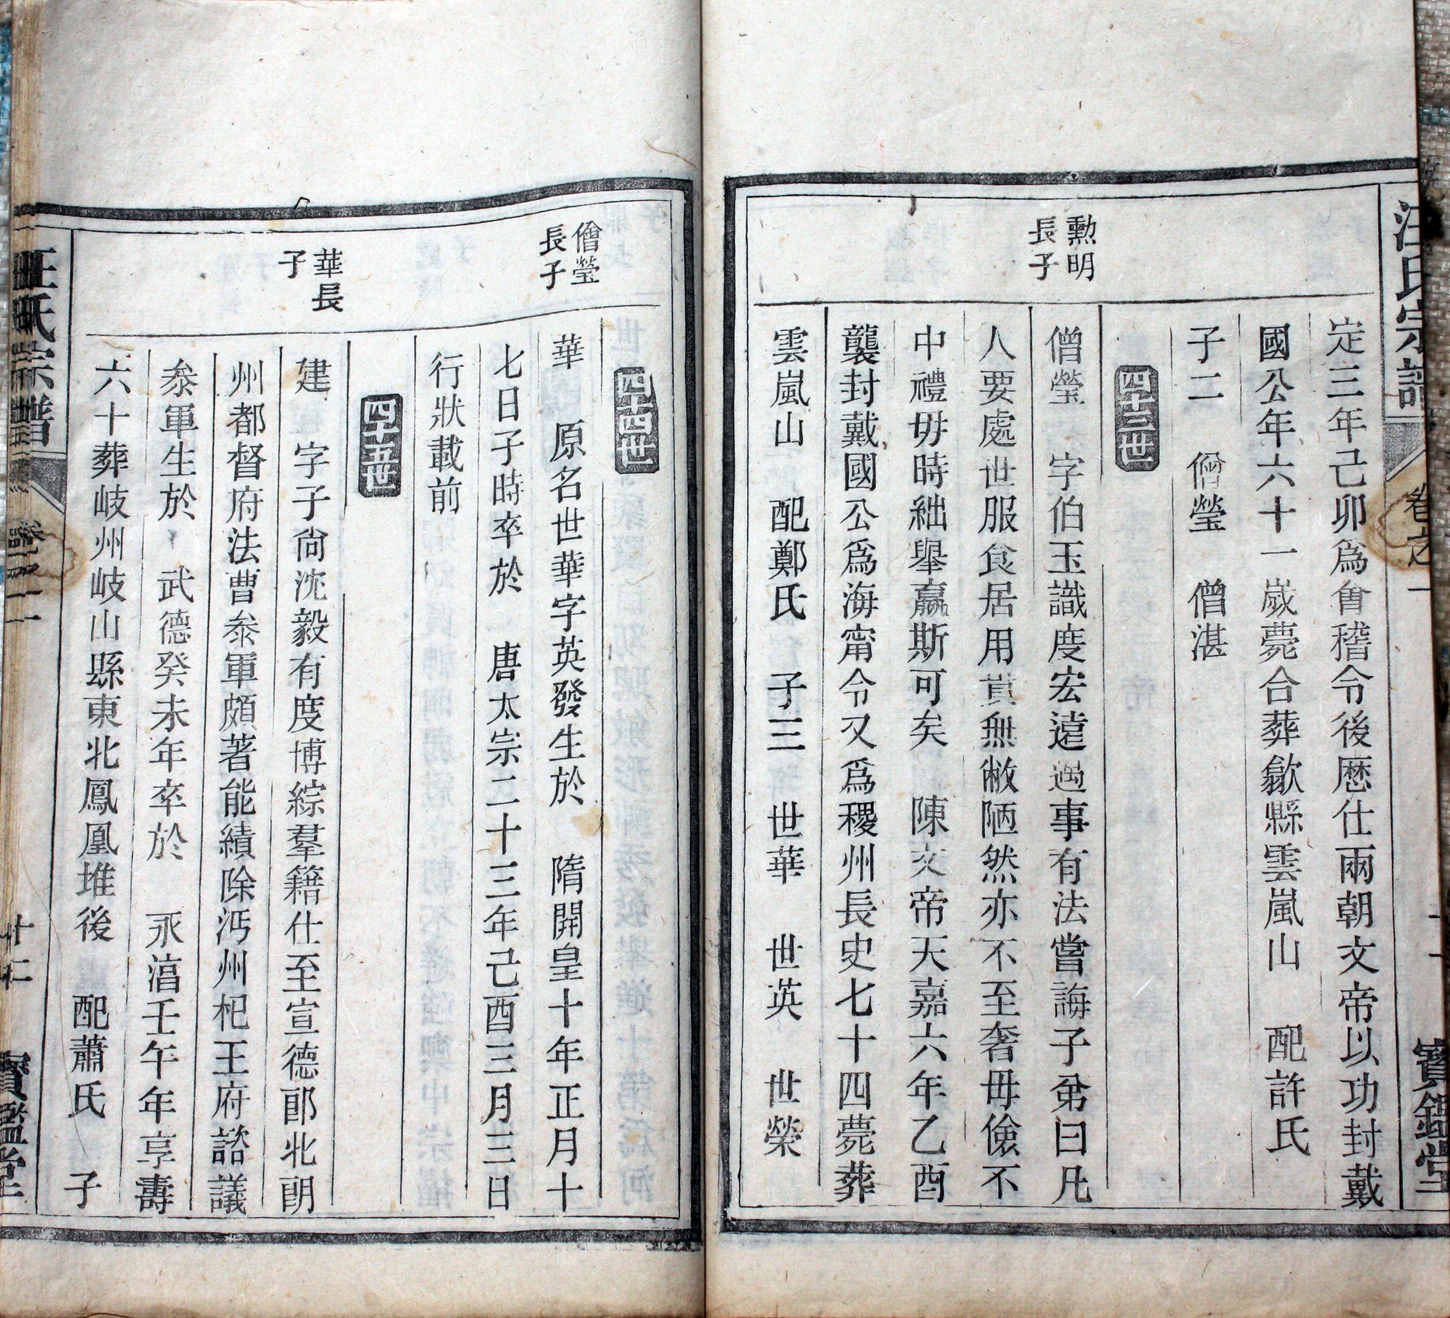 汪氏宗譜
卷之一
寶鑑堂
定三年己卯爲會稽令後歷仕兩朝文帝以功封戴
國公年六十一歲薨合葬歙縣雲嵐山 配許氏
子二 僧瑩 僧湛
四十三世
勲明
長子
僧瑩 字伯玉識度宏遠遇事有法嘗誨子弟曰凡
人要處世服食居用貰無敝陋然亦不至奢毋儉不
中禮毋時絀舉嬴斯可矣 陳文帝天嘉六年乙酉
襲封戴國公爲海甯令又爲稷州長史七十四薨葬
雲嵐山 配鄭氏 子三 世華 世英 世榮
四十四世
僧瑩
長子
華 原名世華字英發生於 隋開皇十年正月十
七日子時卒於 唐太宗二十三年己酉三月三日
行狀載前
四十五世
華長
子
建 字子尙沈毅有度博綜羣籍仕至宣德郎北朗
州都督府法曹叅軍頗著能績除沔州杞王府諮議
叅軍生於 武德癸未年卒於 永淳壬午年享壽
六十葬岐州岐山縣東北鳳凰堆後 配蕭氏 子
汪氏宗譜
寶鑑堂